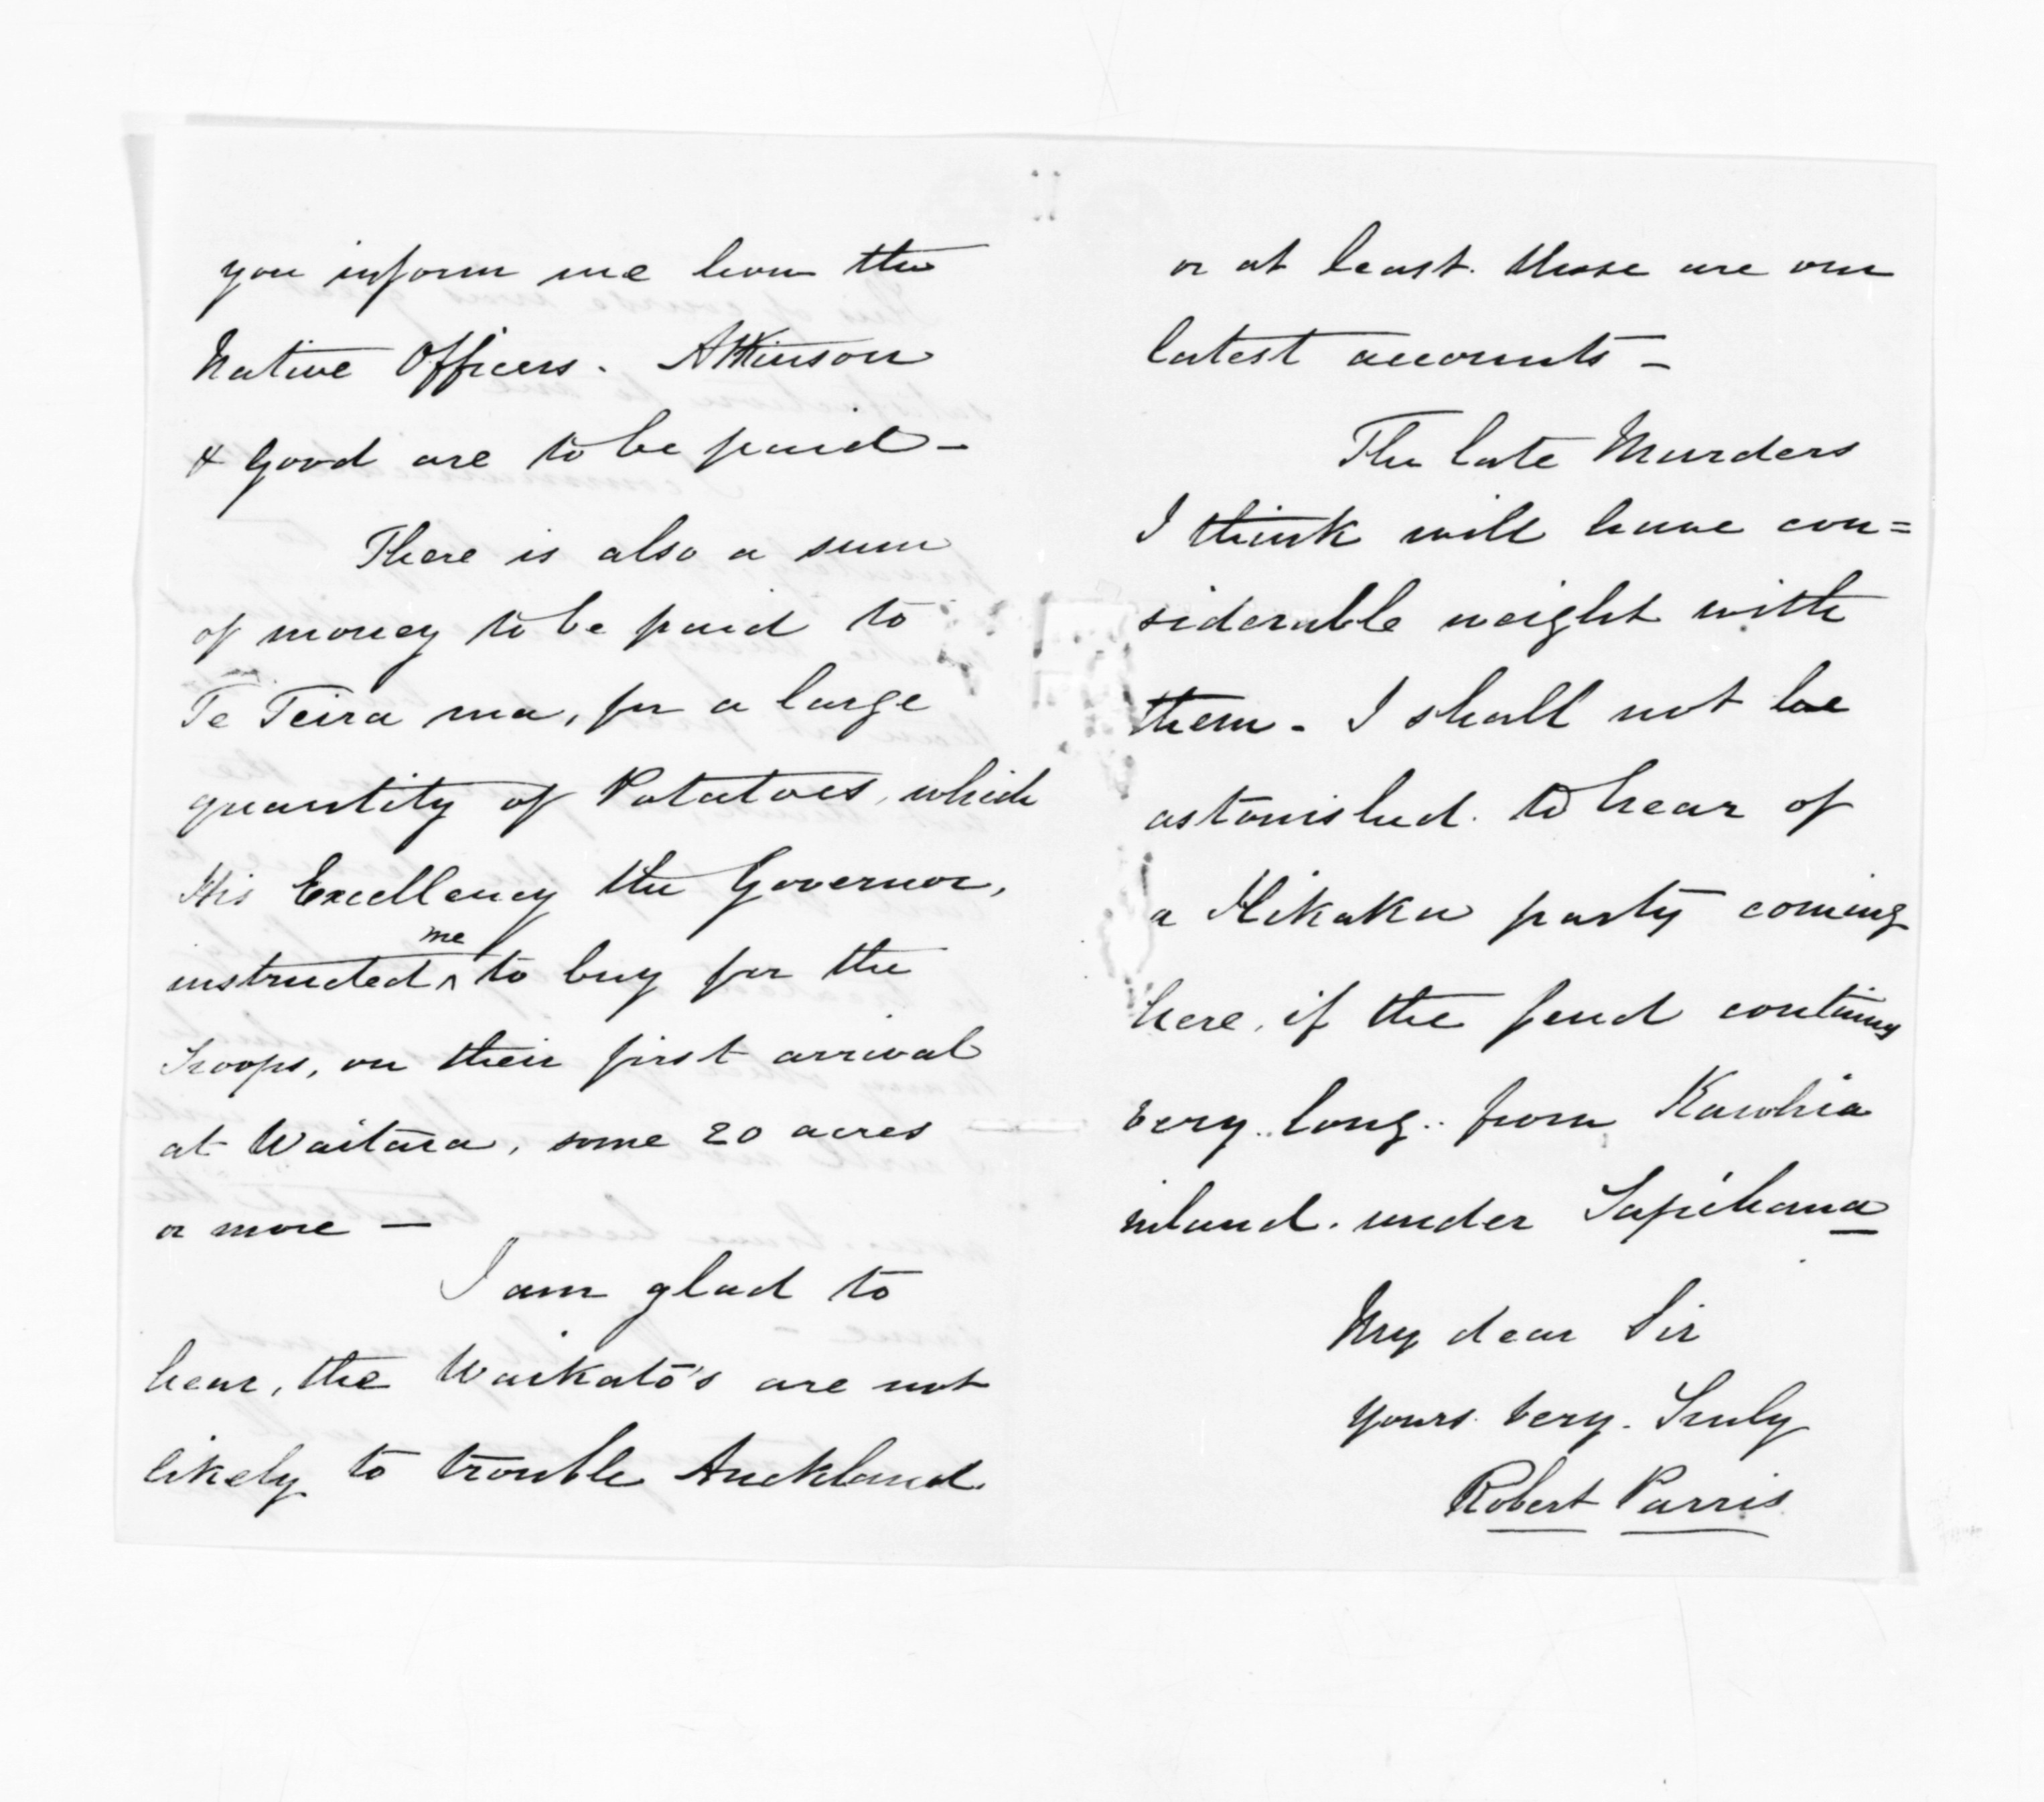 you inform me how the
Native Officers. Atkinson
& Good are to be paid –
There is also a sum
of money to be paid to
Te Teira ma, for a large
quantity of Potatoes, which
His Excellency the Governor,
instructed me to buy for the
Troops, on their first arrival
at Waitara, some 20 acres
or more —
I am glad to
hear, the Waikato's are not
likely to trouble Auckland.
or at least. those are our
latest accounts –
The late Murders
I think will have con=
siderable weight with
them – I shall not be
astonished. to hear of
a Hikaka party coming
here, if the feud continues
very long. from Kawhia
inland. under Tapihana
My dear Sir
yours very. Truly
Robert Parris